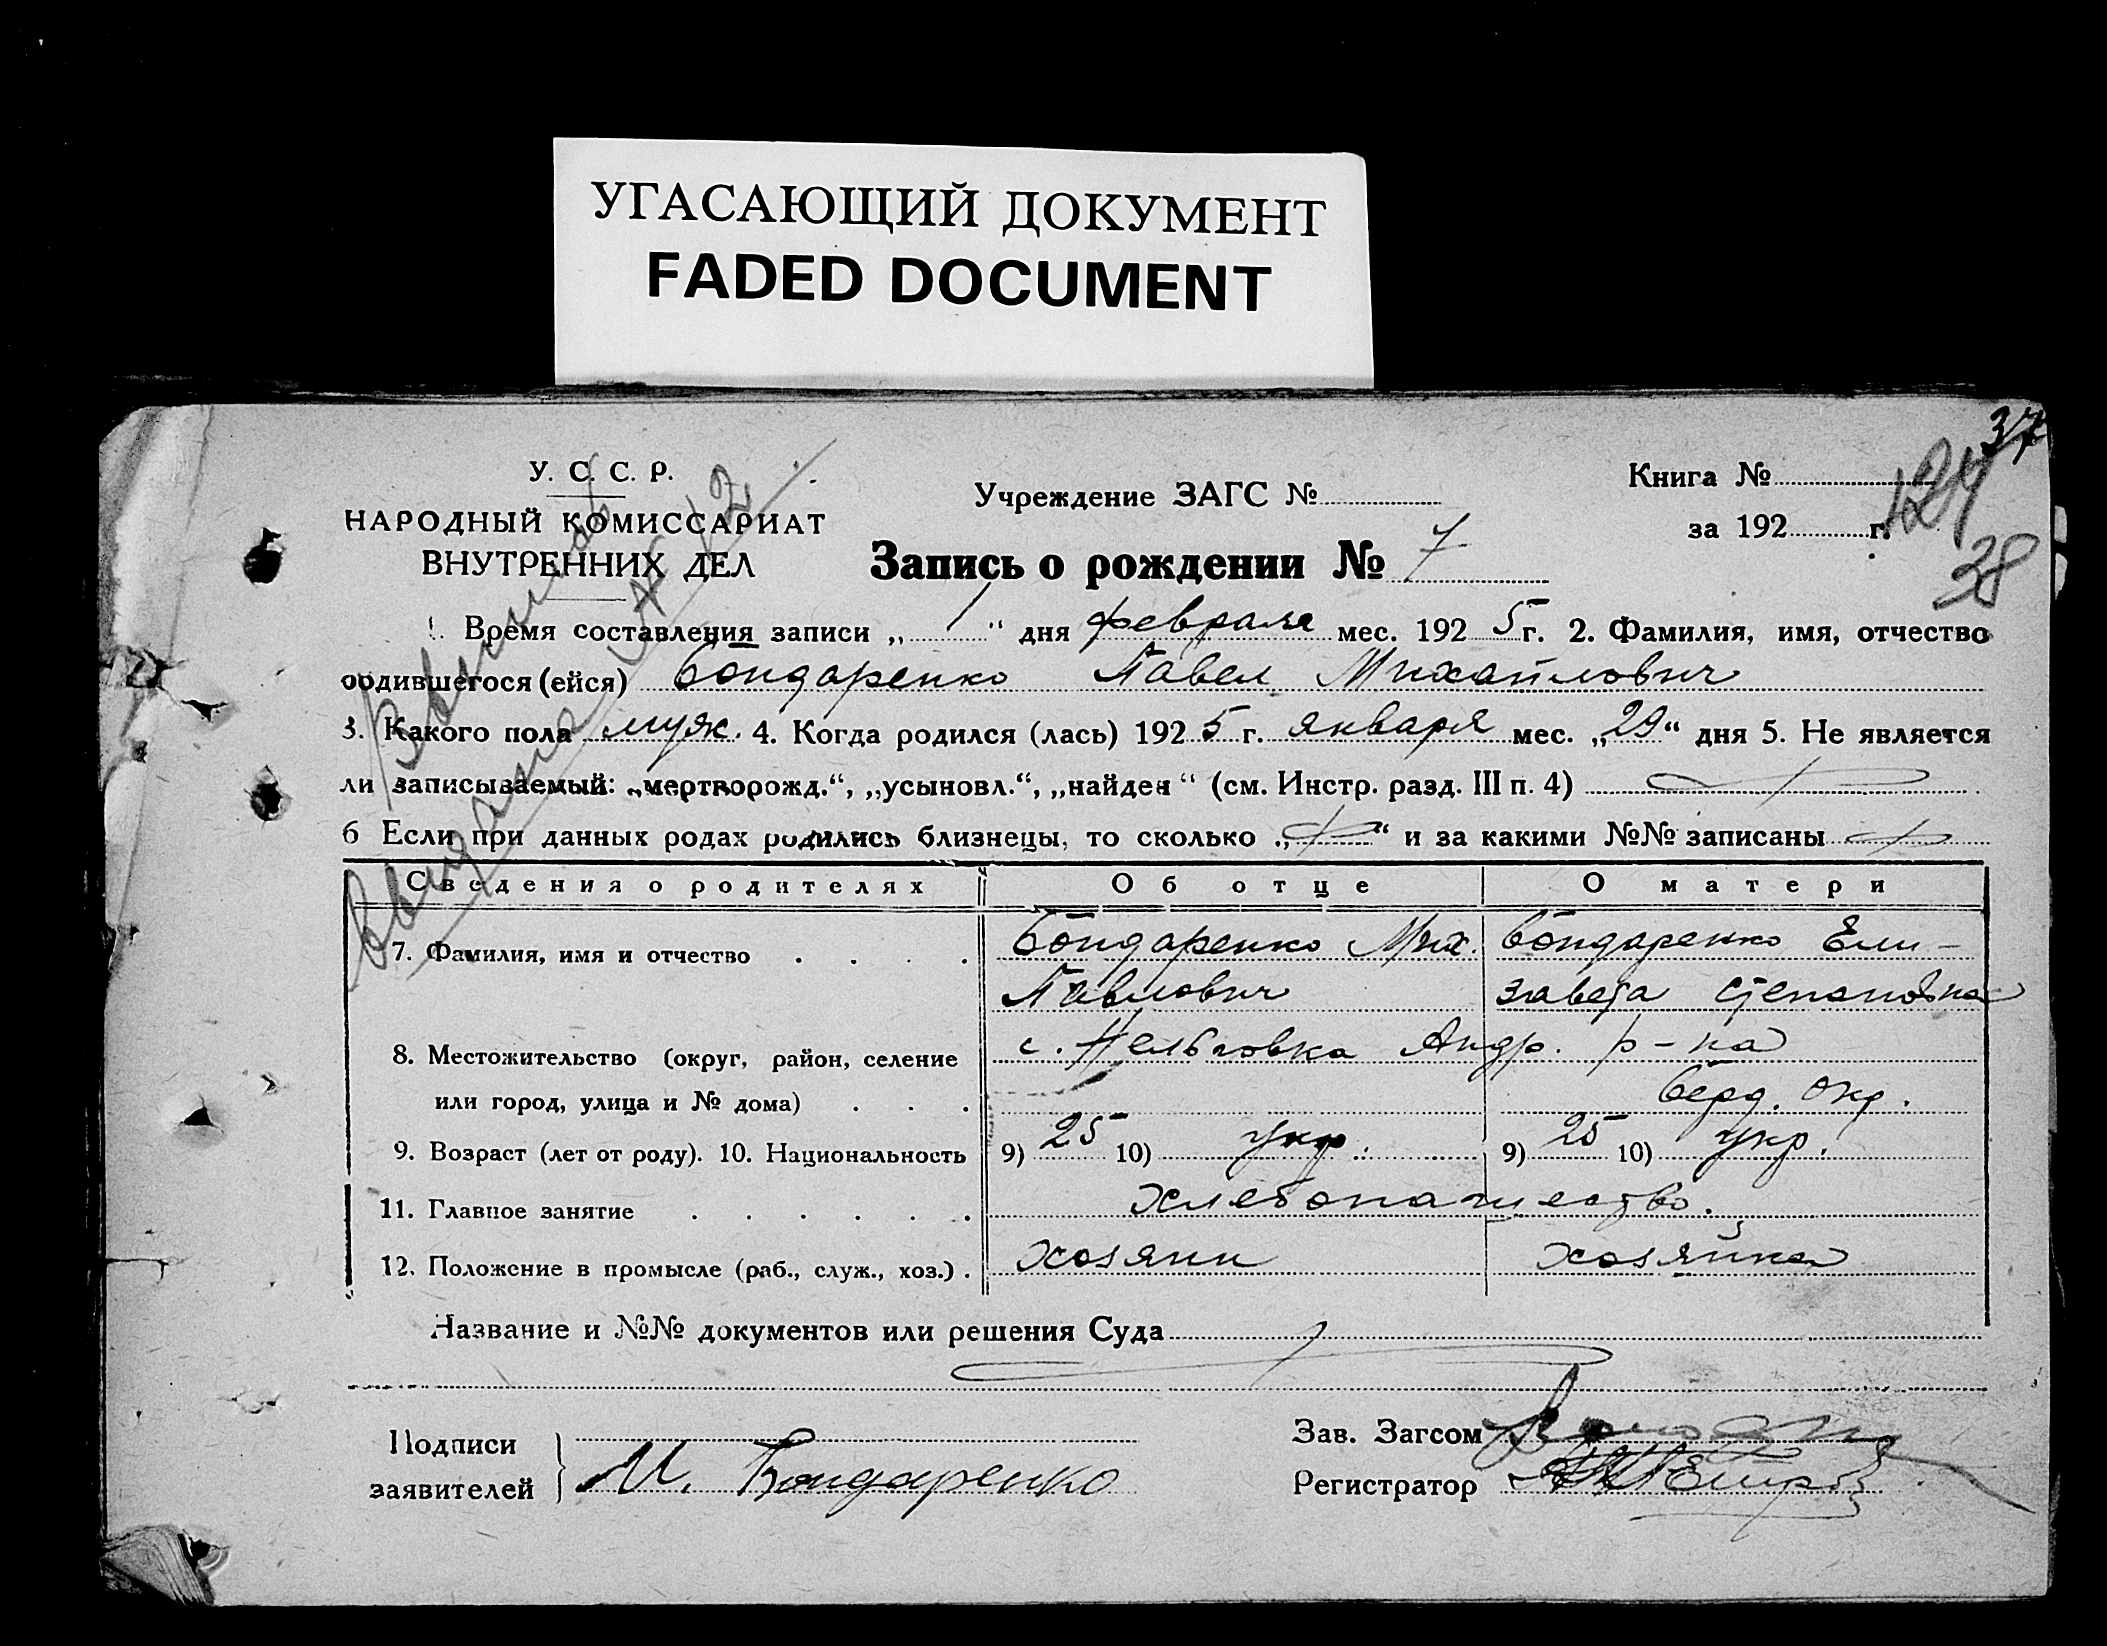 УГАСАЮЩИЙ ДОКУМЕНТ
FADED DOCUMENT
37
124
38
У. С. С. Р.
НАРОДНЫЙ КОМИССАРИАТ
ВНУТРЕННИХ ДЕЛ
Учреждение ЗАГС №
Книга №
за 192 г.
Запись о рождении № 7
1. Время составления записи „ 1 “ дня февраля мес. 192 5 г. 2. Фамилия, имя, отчество
родившегося (ейся) Бондаренко Павел Михайлович
3. Какого пола муж. 4. Когда родился (лась) 192 5 г. января мес. „ 29 “ дня 5. Не является
ли записываемый: „мертворожд.“, „усыновл.“, „найден“ (см. Инстр. разд. III п. 4)
6 Если при данных родах родились близнецы, то сколько „ “ и за какими №№ записаны
Сведения о родителях Об отце О матери
7. Фамилия, имя и отчество Бондаренко Мих. Бондаренко Ели-
Павлович завета Степановна
8. Местожительство (округ, район, селение с. Нельговка Андр. р-на
или город, улица и № дома) Берд. Окр.
9. Возраст (лет от роду). 10. Национальность 9) 25 10) укр. 9) 25 10) укр.
11. Главное занятие хлебопашество.
12. Положение в промысле (раб., служ., хоз.) хозяин хозяйка
Название и №№ документов или решения Суда
Подписи
заявителей М. Бондаренко
Зав. Загсом
Регистратор